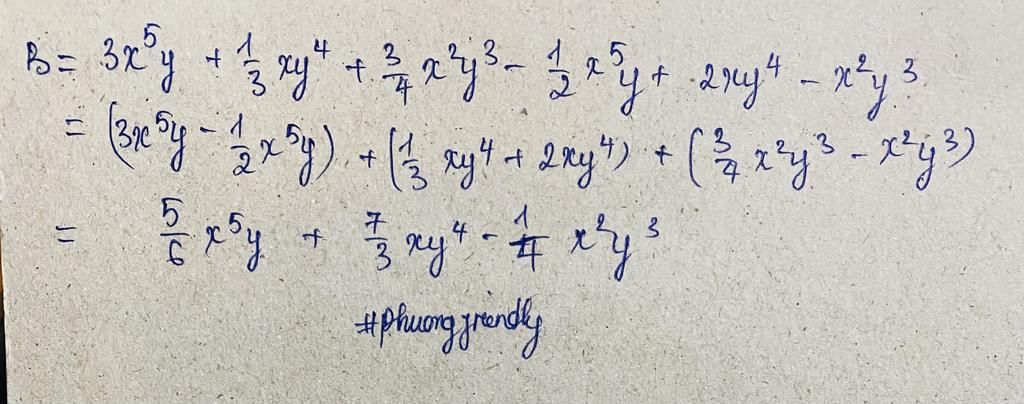 B = 3x⁵y + 1/3 xy⁴ + 3/4 x²y³ - 1/2 x⁵y + 2xy⁴ - x²y³
= (3x⁵y - 1/2 x⁵y) + (1/3 xy⁴ + 2xy⁴) + (3/4 x²y³ - x²y³)
= 5/6 x⁵y + 7/3 xy⁴ - 1/4 x²y³